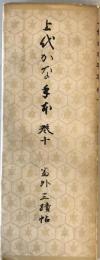 上代かな手本 巻十
寓外三蹟帖